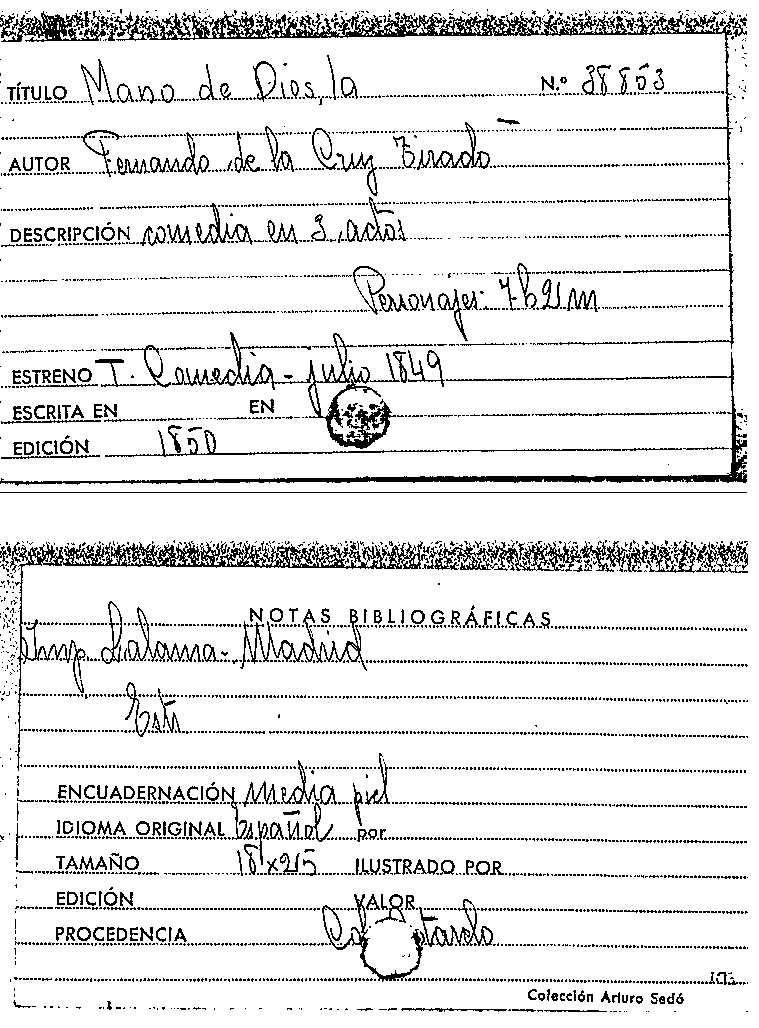 TÍTULO Mano de Dios, la N.º 38853
AUTOR Fernando de la Cruz Tirado
DESCRIPCIÓN comedia en 3 actos
Personajes: 7 h 2 m
ESTRENO T. Comedia - julio 1849
ESCRITA EN EN
EDICIÓN 1850
NOTAS BIBLIOGRÁFICAS
Imp Lalama - Madrid
ENCUADERNACIÓN media piel
IDIOMA ORIGINAL Español por
TAMAÑO ILUSTRADO POR
EDICIÓN VALOR
PROCEDENCIA
Colección Arturo Sedó